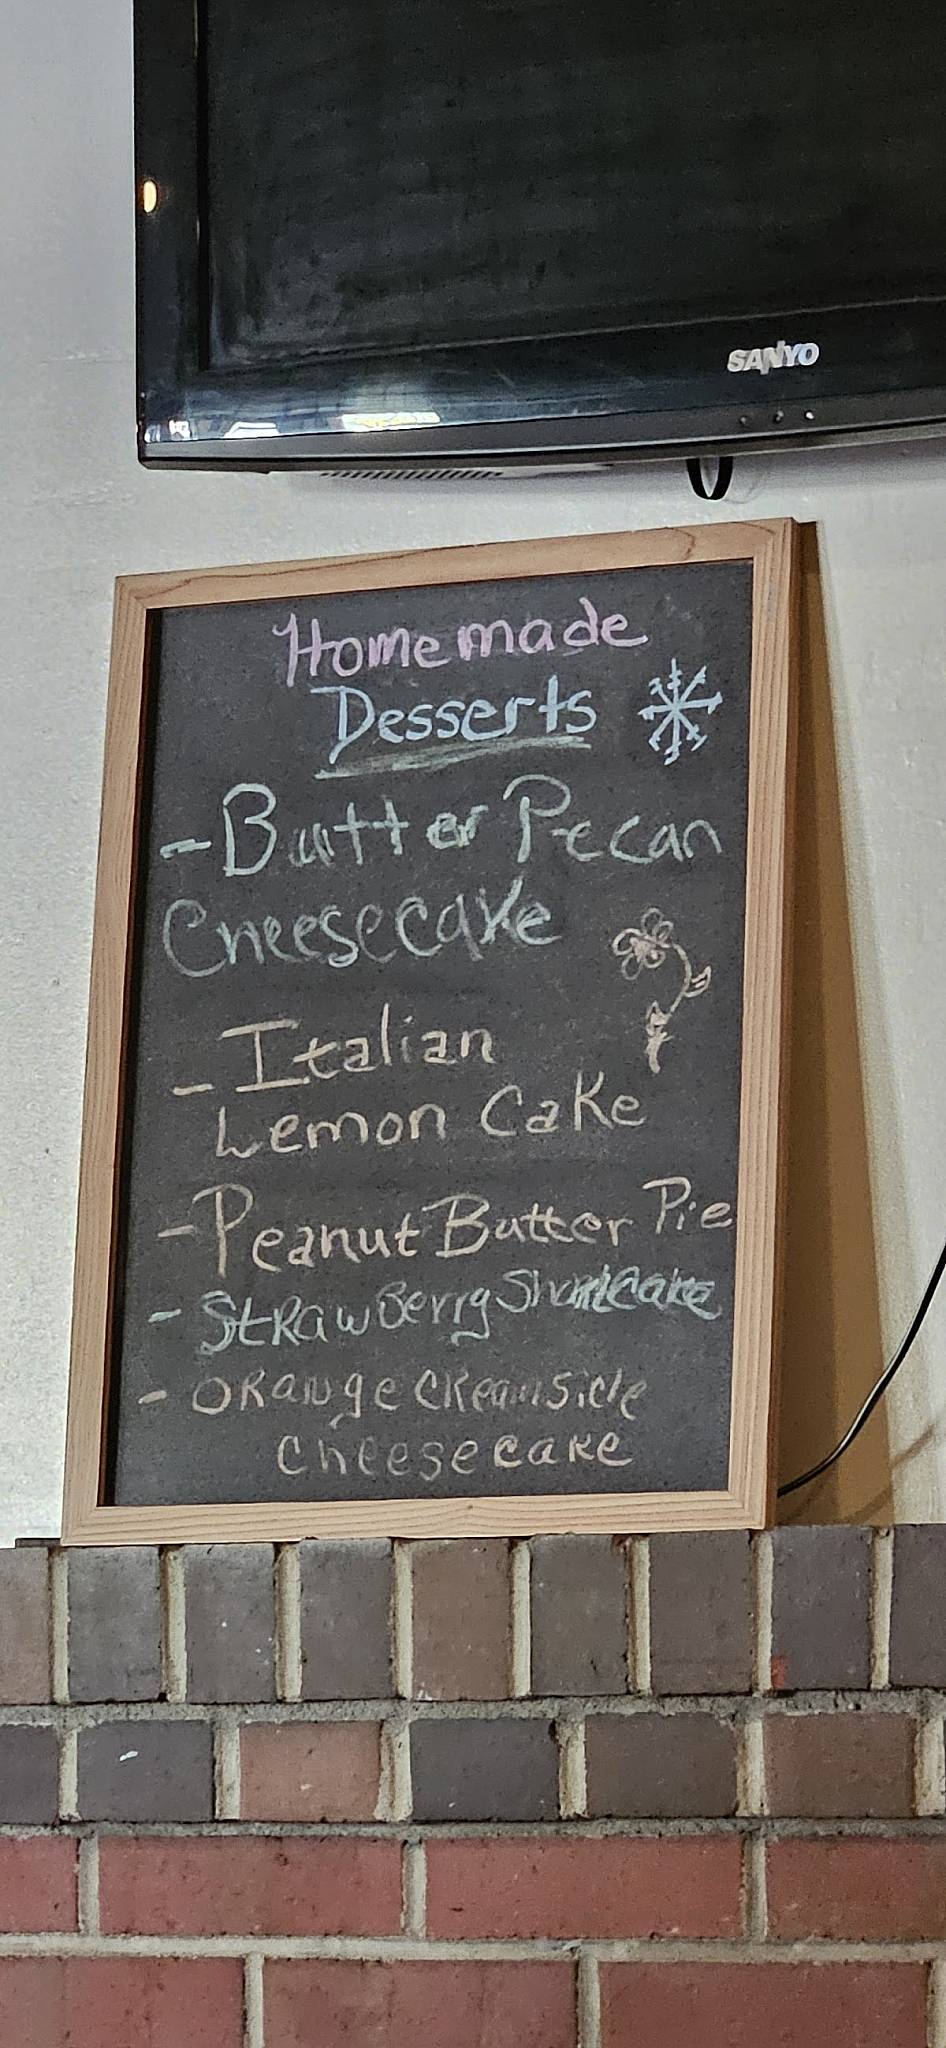 SANYO
Homemade
Desserts
- Butter Pecan
Cheesecake
- Italian
Lemon Cake
- Peanut Butter Pie
- StRawBerry Shortcake
- ORange CReamsicle
Cheesecake